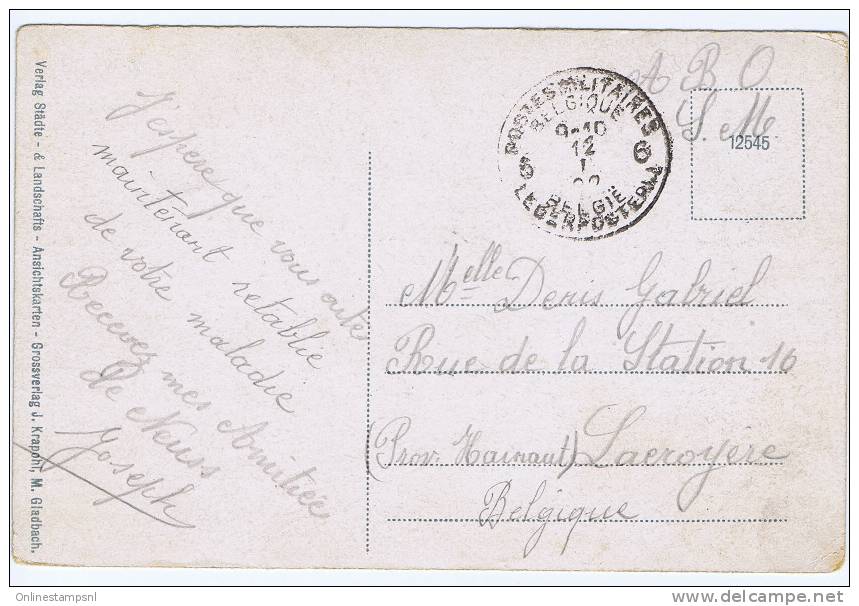 Verlag Städte - & Landschafts - Ansichtskarten - Grossverlag J. Krapohl, M. Gladbach.
J'espere que vous
maintenant retablie
de votre maladie
Recevez mes Amitiée
de Neuss
Joseph
POSTES MILITAIRES
BELGIQUE
9-10
12
I
6 6
BELGIE
LEGERPOSTERIJ
A B O
S. M
12545
Melle Denis Gabriel
Rue de la Station 16
(Prov. Hainaut) Lacroyère
Belgique
Onlinestampsnl
http://www.delcampe.net